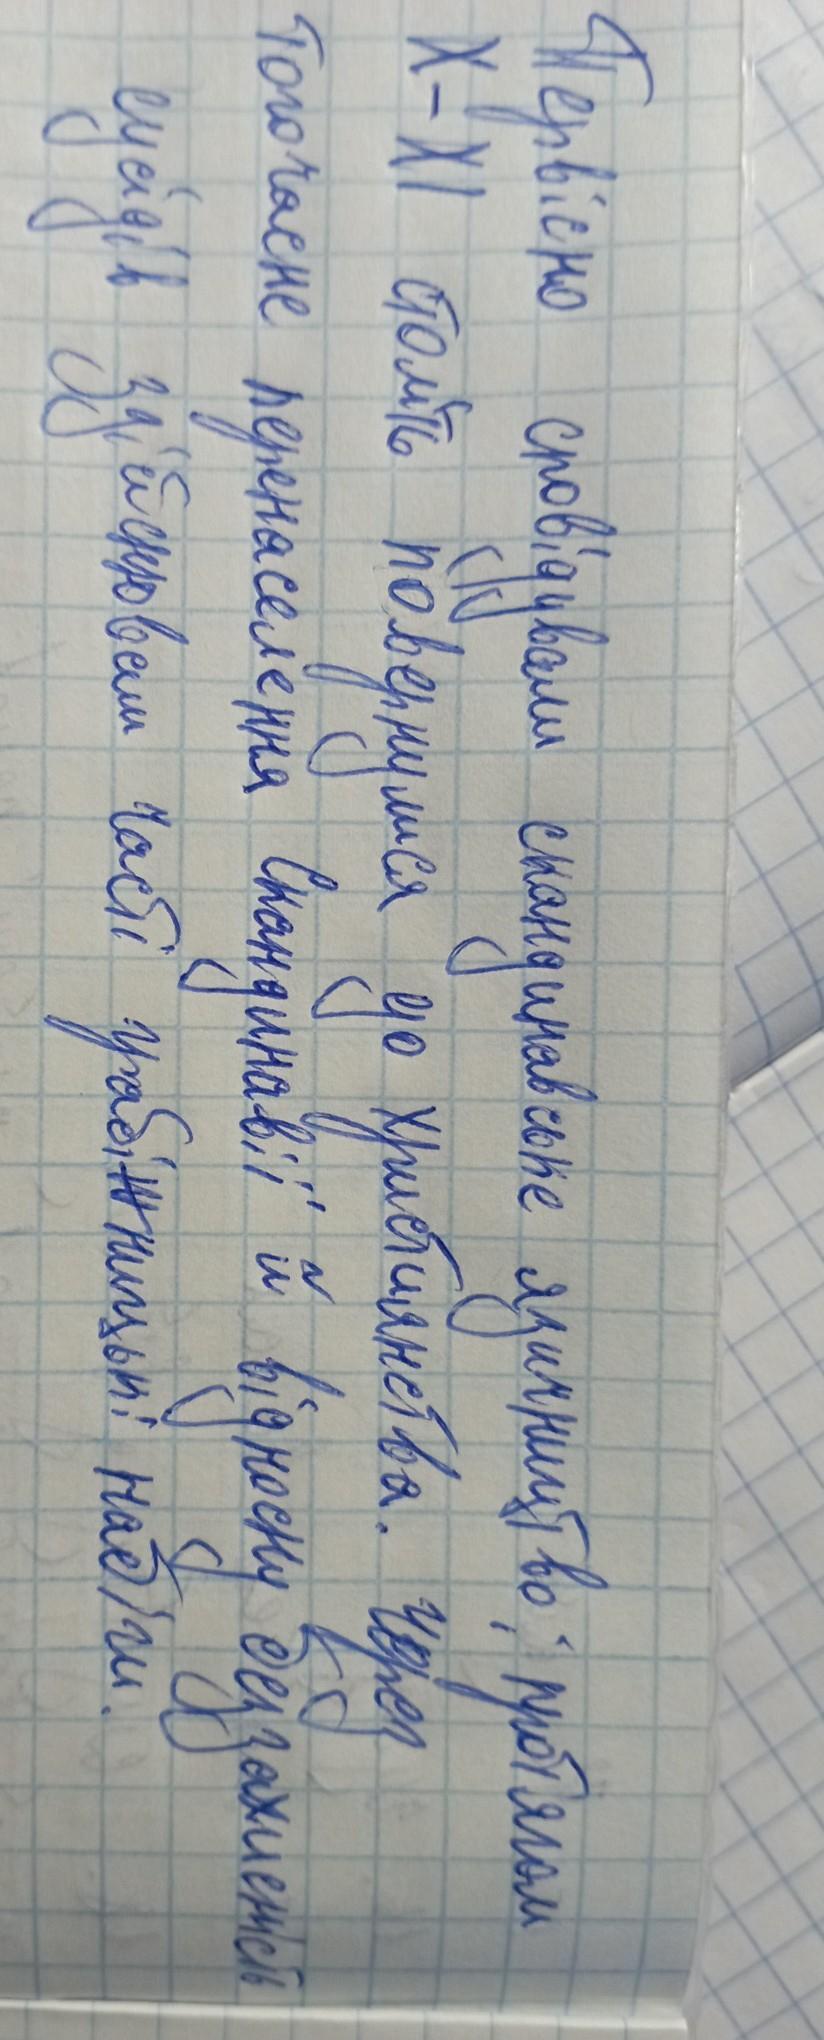 Первісно сповідували скандинавське язичництво; протягом
X-XI століть повернулися до християнства. Через
тогочасне перенаселення Скандинавії й відносну беззахисність
сусідів здійснювали часті грабіжницькі набіги.